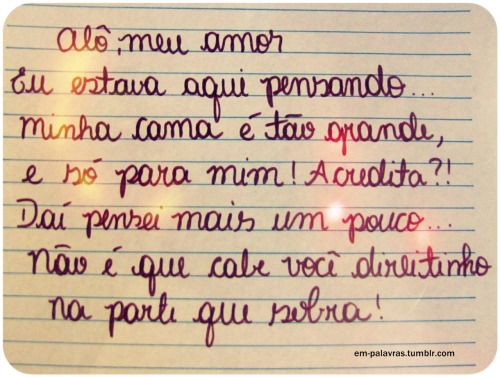 Alô, meu amor
Eu estava aqui pensando...
minha cama é tão grande,
e só para mim! Acredita?!
Daí pensei mais um pouco...
não é que cabe você direitinho
na parte que sobra!
em-palavras.tumblr.com